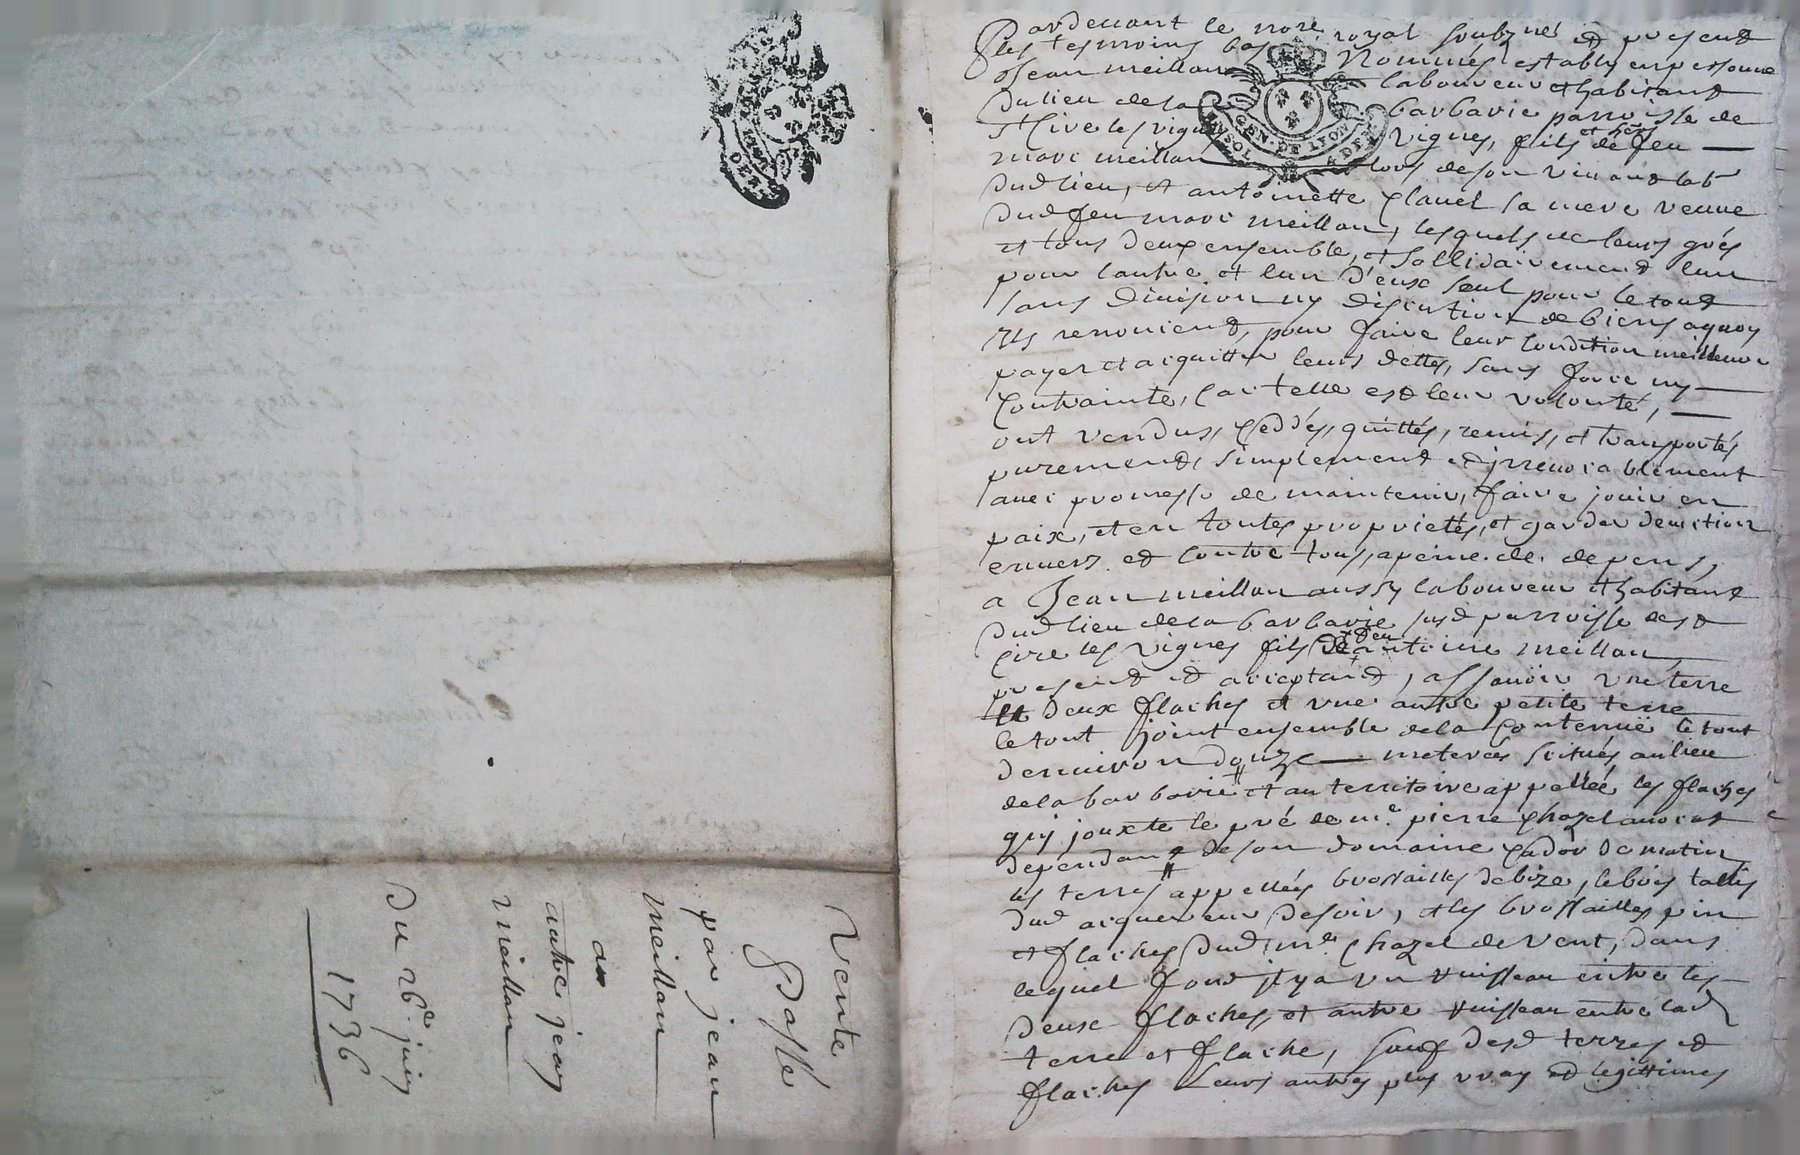 Vente
Passée
par jean
meillan
a
autre jean
meillan
Du 26e juin
1736
Pardevant le nore royal soubzné et present
les tesmoins bas Nommés, estably en personne
Jean meillan laboureur et habitant
du lieu de la barbarie parroisse de
st Cire les vignes, fils et hers de feu
marc meillan lors de son vivant labr
dud lieu, et antoinette planel sa mere veuve
dud feu marc meillan, lesquels de leurs grés
et tous deux ensemble, et sollidairement l'un
pour l'autre et l'un d'eux seul pour le tout
sans division ny discution de biens a quoy
ils renoncient, pour faire leur condition meilleure
payer et acquitter leurs dettes, sans force ny
contrainte, car telle est leur volonté,
ont vendus, ceddés, quittés, remis, et transportés
purement, simplement et jrrevocablement
avec promesse de maintenir, faire jouir en
paix, et en toutes proprietés, et garder deviction
envers et contre tous, a peine de depens,
a Jean meillan aussy laboureur et habitant
dud lieu de la barbarie susd parroisse de st
Cire les vignes fils de feu antoine meillan,
present et acceptant, assavoir une terre
deux flaches et une autre petite terre
le tout joint ensemble de la contenue le tout
denviron douze meterées scitués au lieu
de la barbarie et au territoire appellée les flaches
quj jouxte le pré de me pierre chazel avocat
dependant de son domaine de matin,
les terres appellées brossailles de bize, le bois taillis
dud acquereur de soir, et les brossailles pin
et flaches dud me chazel de vent, dans
lequel fond jl y a un ruisseau entre les
deux flaches, et autre ruisseau entre lad
terre et flache, sauf desd terres et
flaches leurs autres plus vray et legittimes
GEN. DE LYON